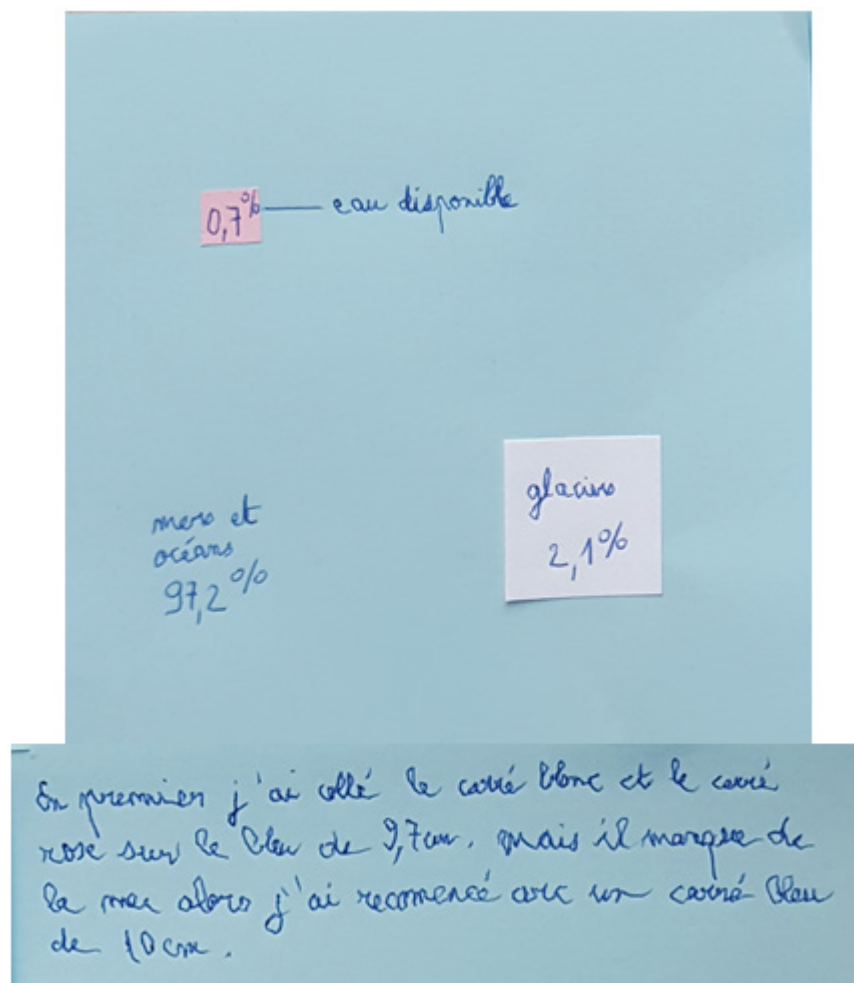 0,7%
eau disponible
mers et
océans
97,2%
glaciers
2,1%
En premier j'ai collé le carré blanc et le carré
rose sur le bleu de 9,7cm. mais il manque de
la mer alors j'ai recomencé avec un carré bleu
de 10 cm.